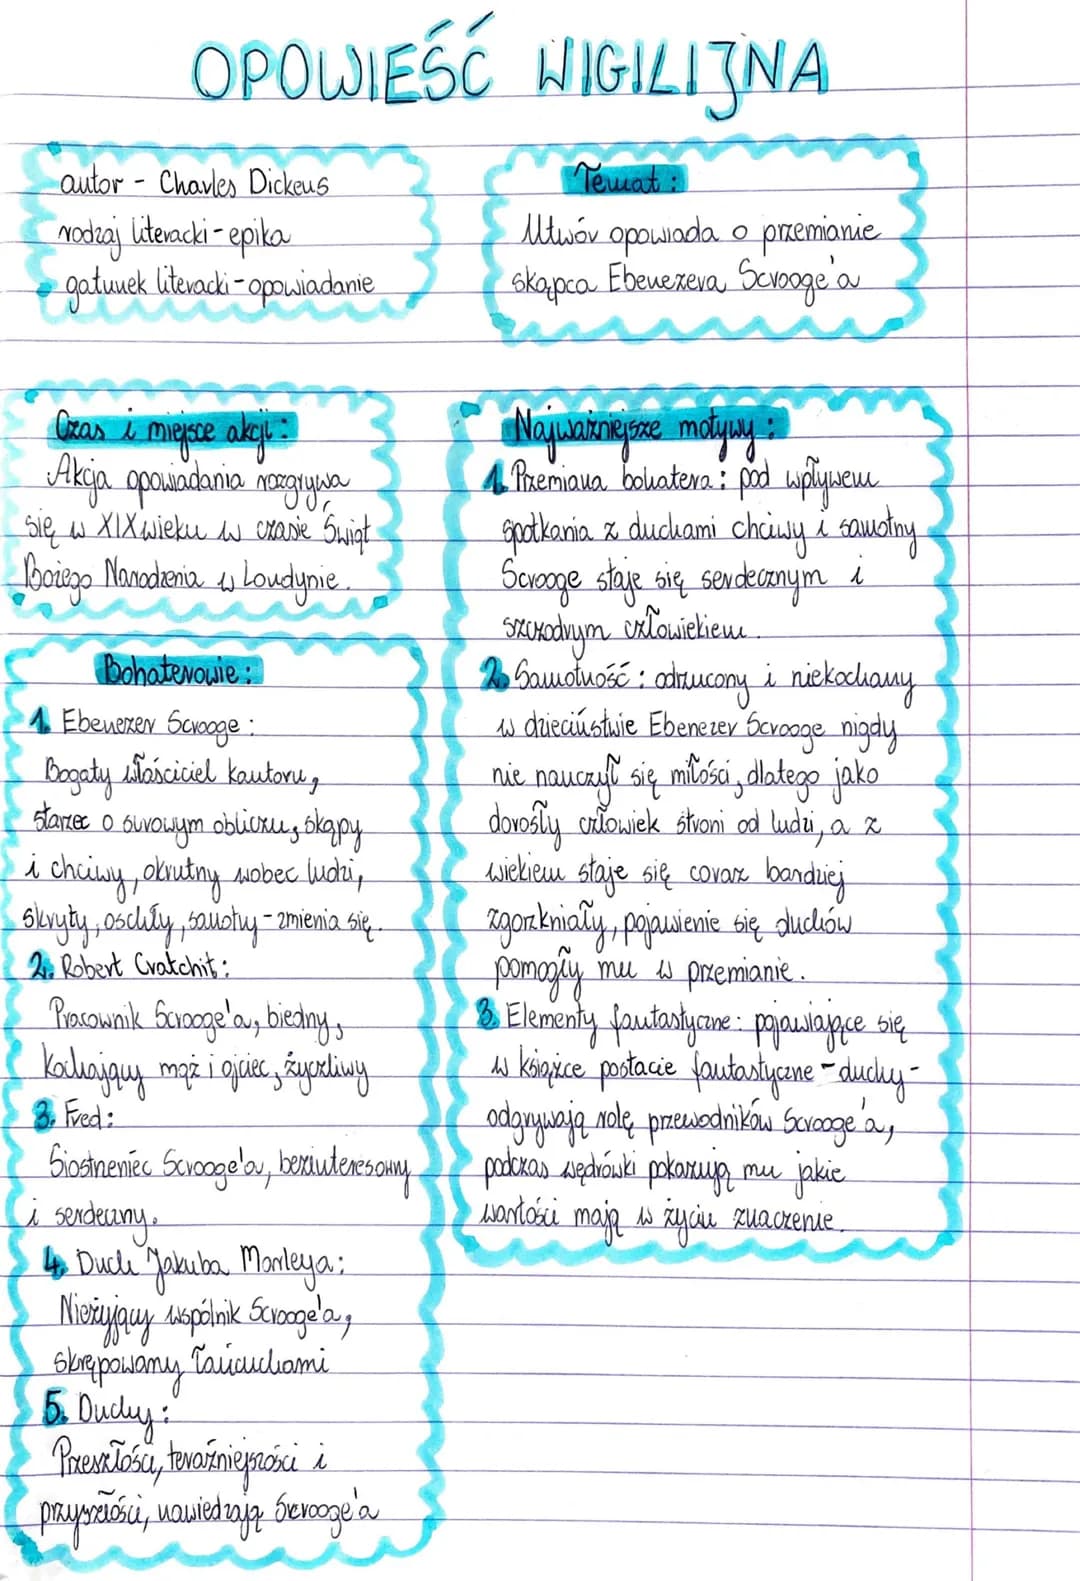 OPOWIEŚĆ WIGILIJNA
autor - Charles Dickens
rodzaj literacki - epika
gatunek literacki - opowiadanie
Temat:
Utwór opowiada o przemianie
skąpca Ebenezera Scrooge'a
Czas i miejsce akcji:
Akcja opowiadania rozgrywa
się w XIX wieku w czasie Świąt
Bożego Narodzenia w Londynie.
Bohaterowie:
1. Ebenezer Scrooge:
Bogaty właściciel kantoru,
starzec o surowym obliczu, skąpy
i chciwy, okrutny wobec ludzi,
skryty, oschły, samotny - zmienia się.
2. Robert Cratchit:
Pracownik Scrooge'a, biedny,
kochający mąż i ojciec, życzliwy
3. Fred:
Siostrzeniec Scrooge'a, bezinteresowny
i serdeczny.
4. Duch Jakuba Marleya:
Nieżyjący wspólnik Scrooge'a,
skrępowany łańcuchami
5. Duchy:
Przeszłości, teraźniejszości i
przyszłości, nawiedzają Scrooge'a
Najważniejsze motywy:
1. Przemiana bohatera: pod wpływem
spotkania z duchami chciwy i samotny
Scrooge staje się serdecznym i
szczodrym człowiekiem.
2. Samotność: odrzucony i niekochany
w dzieciństwie Ebenezer Scrooge nigdy
nie nauczył się miłości, dlatego jako
dorosły człowiek stroni od ludzi, a z
wiekiem staje się coraz bardziej
zgorzkniały, pojawienie się duchów
pomogły mu w przemianie.
3. Elementy fantastyczne: pojawiające się
w książce postacie fantastyczne - duchy -
odgrywają rolę przewodników Scrooge'a,
podczas wędrówki pokazują mu jakie
wartości mają w życiu znaczenie.